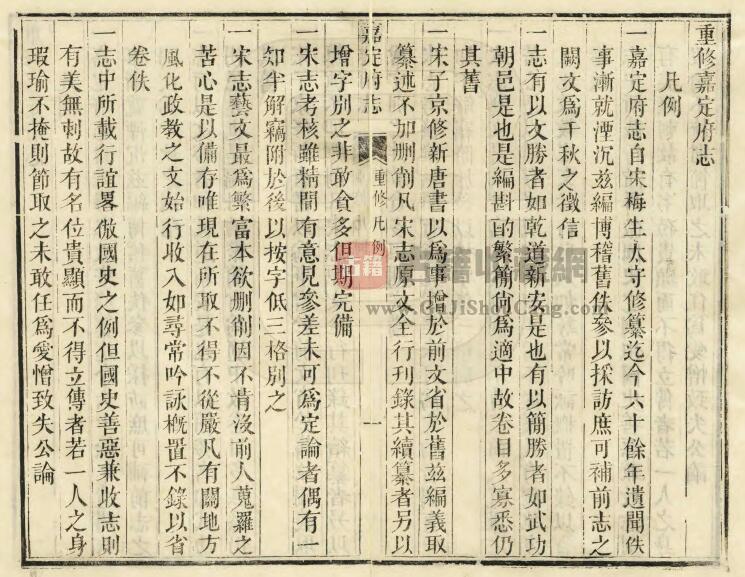 重修嘉定府志
凡例
一嘉定府志自宋梅生太守修纂迄今六十餘年遺聞佚
事漸就湮沉兹編博稽舊佚參以採訪庶可補前志之
闕文爲千秋之徵信
一志有以文勝者如乾道新安是也有以簡勝者如武功
朝邑是也是編斟酌繁簡尚爲適中故卷目多寡悉仍
其舊
一宋子京修新唐書以爲事增於前文省於舊兹編義取
纂述不加删削凡宋志原文全行刊錄其續纂者另以
嘉定府志
重修凡例
一
增字別之非敢貪多但期完備
一宋志考核雖精間有意見參差未可爲定論者偶有一
知半解竊附於後以按字低三格別之
一宋志藝文最爲繁富本欲删削因不肯沒前人蒐羅之
苦心是以備存唯現在所取不得不從嚴凡有關地方
風化政教之文始行收入如尋常吟詠概置不錄以省
卷佚
一志中所載行誼畧倣國史之例但國史善惡兼收志則
有美無刺故有名位貴顯而不得立傳者若一人之身
瑕瑜不掩則節取之未敢任爲愛憎致失公論
古籍
www.GuJiShouCang.com